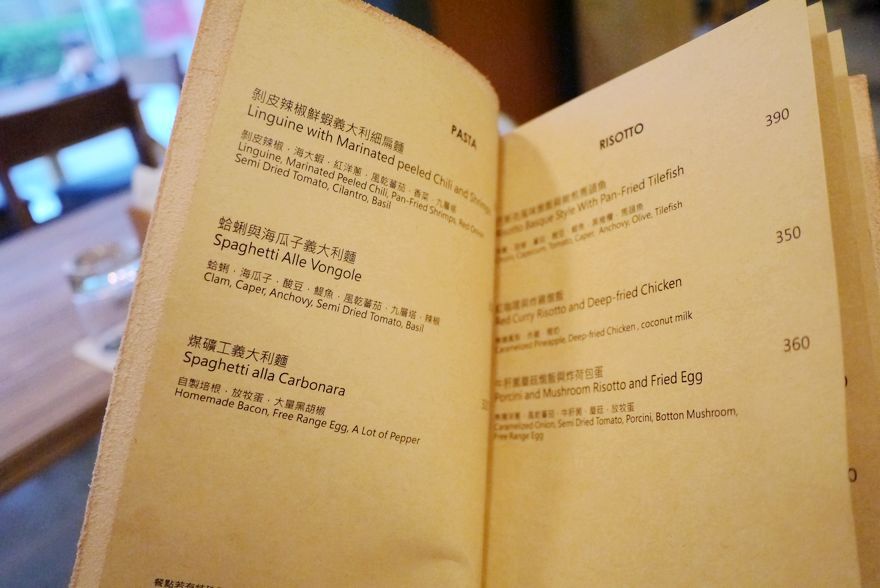 PASTA
剝皮辣椒鮮蝦義大利細扁麵
Linguine with Marinated peeled Chili and Shrimps
剝皮辣椒．海大蝦．紅洋蔥．風乾蕃茄．香菜．九層塔
Linguine, Marinated Peeled Chili, Pan-Fried Shrimps, Red Onion,
Semi Dried Tomato, Cilantro, Basil
蛤蜊與海瓜子義大利麵
Spaghetti Alle Vongole
蛤蜊．海瓜子．酸豆．鯷魚．風乾蕃茄．九層塔．辣椒
Clam, Caper, Anchovy, Semi Dried Tomato, Basil
煤礦工義大利麵
Spaghetti alla Carbonara
自製培根．放牧蛋．大量黑胡椒
Homemade Bacon, Free Range Egg, A Lot of Pepper
餐點若有
RISOTTO
390
Basque Style With Pan-Fried Tilefish
Capsicum, Tomato, Caper, Anchovy, Olive, Tilefish
350
紅咖哩與炸雞燉飯
Red Curry Risotto and Deep-fried Chicken
Caramelized Pineapple, Deep-fried Chicken, coconut milk
360
牛肝蕈蘑菇燉飯與炸荷包蛋
Porcini and Mushroom Risotto and Fried Egg
風乾蕃茄．牛肝蕈．蘑菇．放牧蛋
Caramelized Onion, Semi Dried Tomato, Porcini, Botton Mushroom,
Free Range Egg